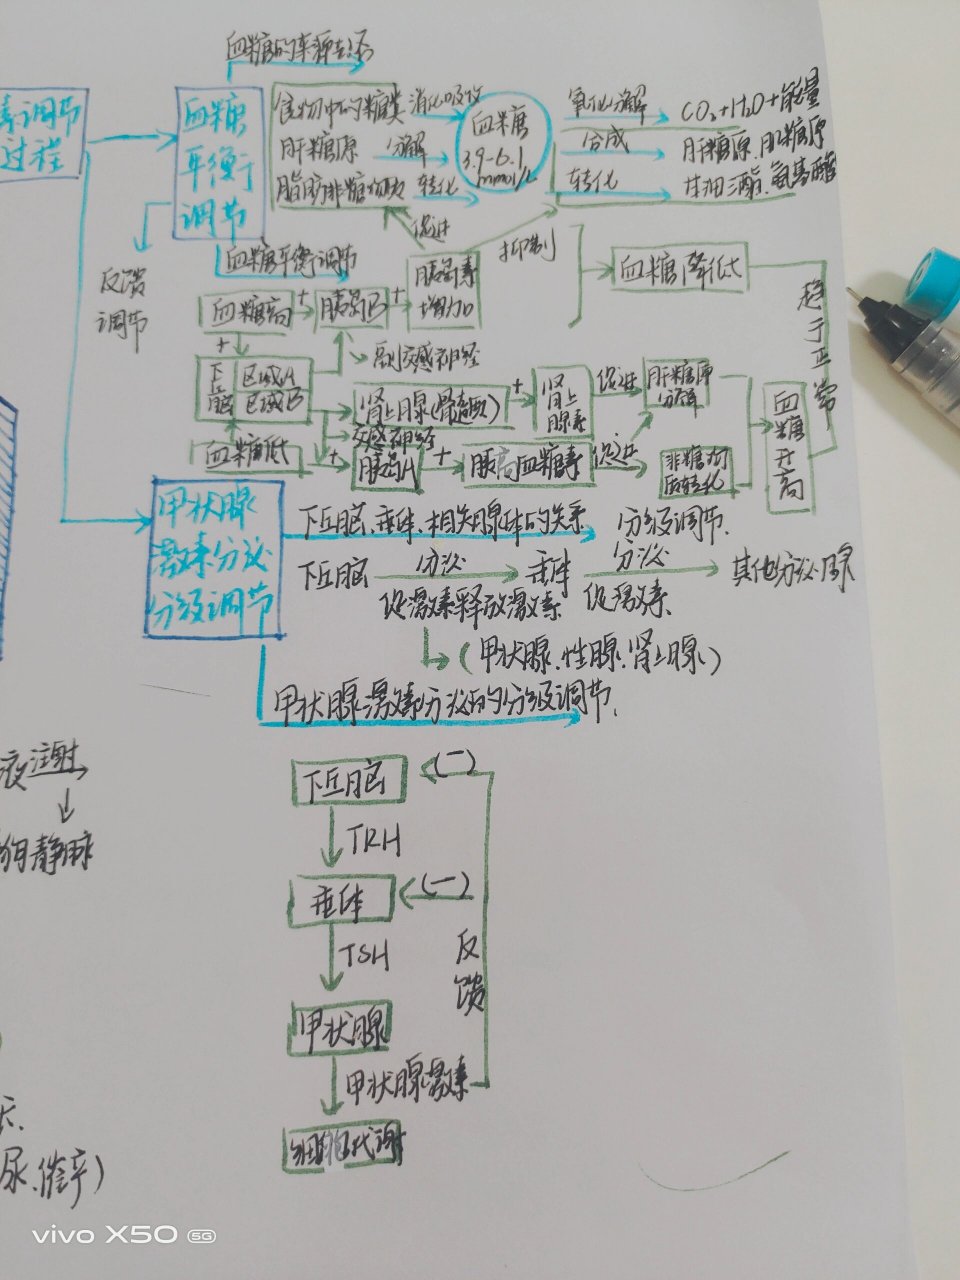 血糖的来源去路
素调节
过程
血糖
平衡
调节
食物中的糖类 消化吸收
肝糖原 分解
脂肪等非糖物质 转化
血糖
3.9-6.1
mmol/L
氧化分解 CO₂+H₂O+能量
合成 肝糖原、肌糖原
转化 甘油三酯、氨基酸
促进
抑制
反馈
调节
血糖平衡调节
血糖高 + 胰岛B + 胰岛素
增加
血糖降低
趋于正常
+
副交感神经
下丘脑 区域A
区域B
肾上腺(髓质) + 肾上腺素 促进 肝糖原
分解
交感神经
血糖低 + 胰岛A + 胰高血糖素 促进 非糖物
质转化
血糖升高
甲状腺
激素分泌
分级调节
下丘脑、垂体、相关腺体的关系 分级调节.
下丘脑 分泌 垂体 分泌 其他分泌腺
促激素释放激素 促激素
(甲状腺、性腺、肾上腺)
甲状腺激素分泌的分级调节.
下丘脑 (一)
TRH
垂体 (一)
TSH
反馈
甲状腺
甲状腺激素
细胞代谢
液注射
狗静脉
尿、催产)
vivo X50 5G